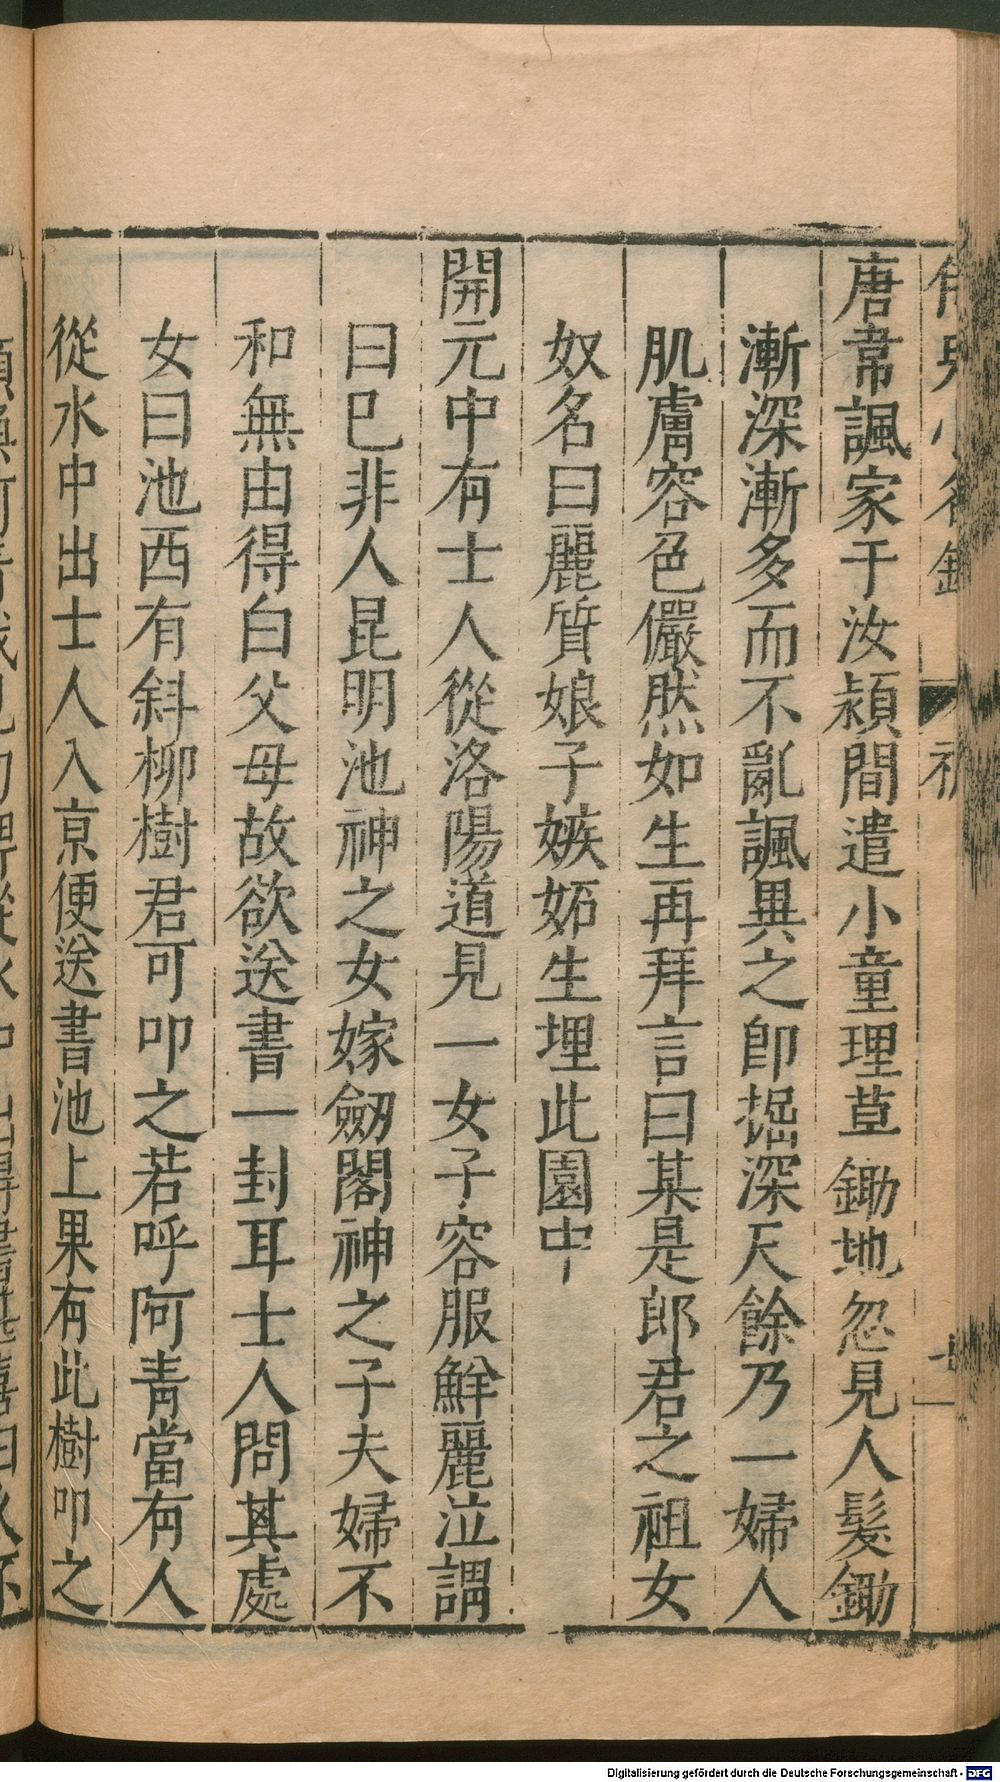 唐韋諷家于汝潁間遣小童理草鋤地忽見人髮鋤
漸深漸多而不亂諷異之卽掘深尺餘乃一婦人
肌膚容色儼然如生再拜言曰某是郎君之祖女
奴名曰麗質娘子嫉妬生埋此園中
開元中有士人從洛陽道見一女子容服鮮麗泣謂
曰巳非人昆明池神之女嫁劒閣神之子夫婦不
和無由得白父母故欲送書一封耳士人問其處
女曰池西有斜柳樹君可叩之若呼阿青當有人
從水中出士人入京便送書池上果有此樹叩之
Digitalisierung gefördert durch die Deutsche Forschungsgemeinschaft - DFG